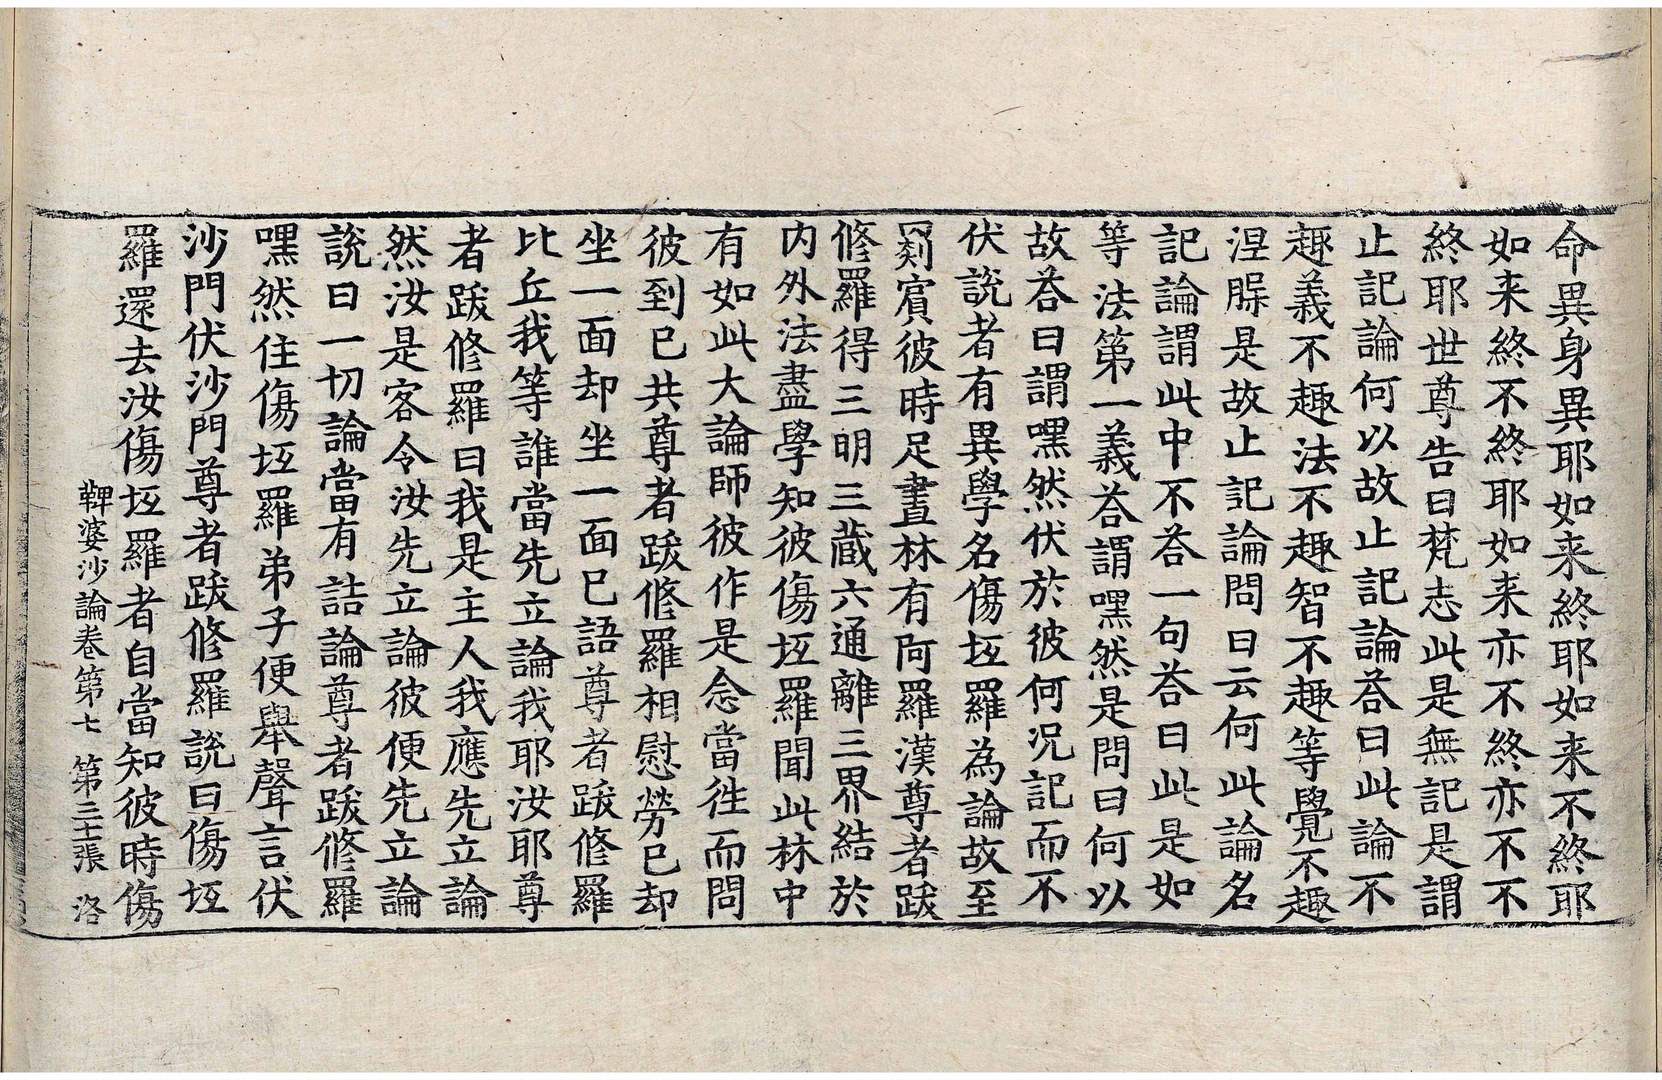 命異身異耶如来終耶如来不終耶
如来終不終耶如来亦不終亦不不
終耶世尊告曰梵志此是無記是謂
止記論何以故止記論荅曰此論不
趣義不趣法不趣智不趣等覺不趣
涅槃是故止記論問曰云何此論名
記論謂此中不荅一句荅曰此是如
等法第一義荅謂嘿然是問曰何以
故荅曰謂嘿然伏於彼何况記而不
伏說者有異學名傷坘羅為論故至
罽賓彼時足晝林有阿羅漢尊者跋
修羅得三明三藏六通離三界結於
内外法盡學知彼傷坘羅聞此林中
有如此大論師彼作是念當徃而問
彼到已共尊者跋修羅相慰勞已却
坐一面却坐一面已語尊者跋修羅
比丘我等誰當先立論我耶汝耶尊
者跋修羅曰我是主人我應先立論
然汝是客令汝先立論彼便先立論
說曰一切論當有詰論尊者跋修羅
嘿然住傷坘羅弟子便舉聲言伏
沙門伏沙門尊者跋修羅說曰傷坘
羅還去汝傷坘羅者自當知彼時傷
鞞婆沙論卷第七 第三十張 洛